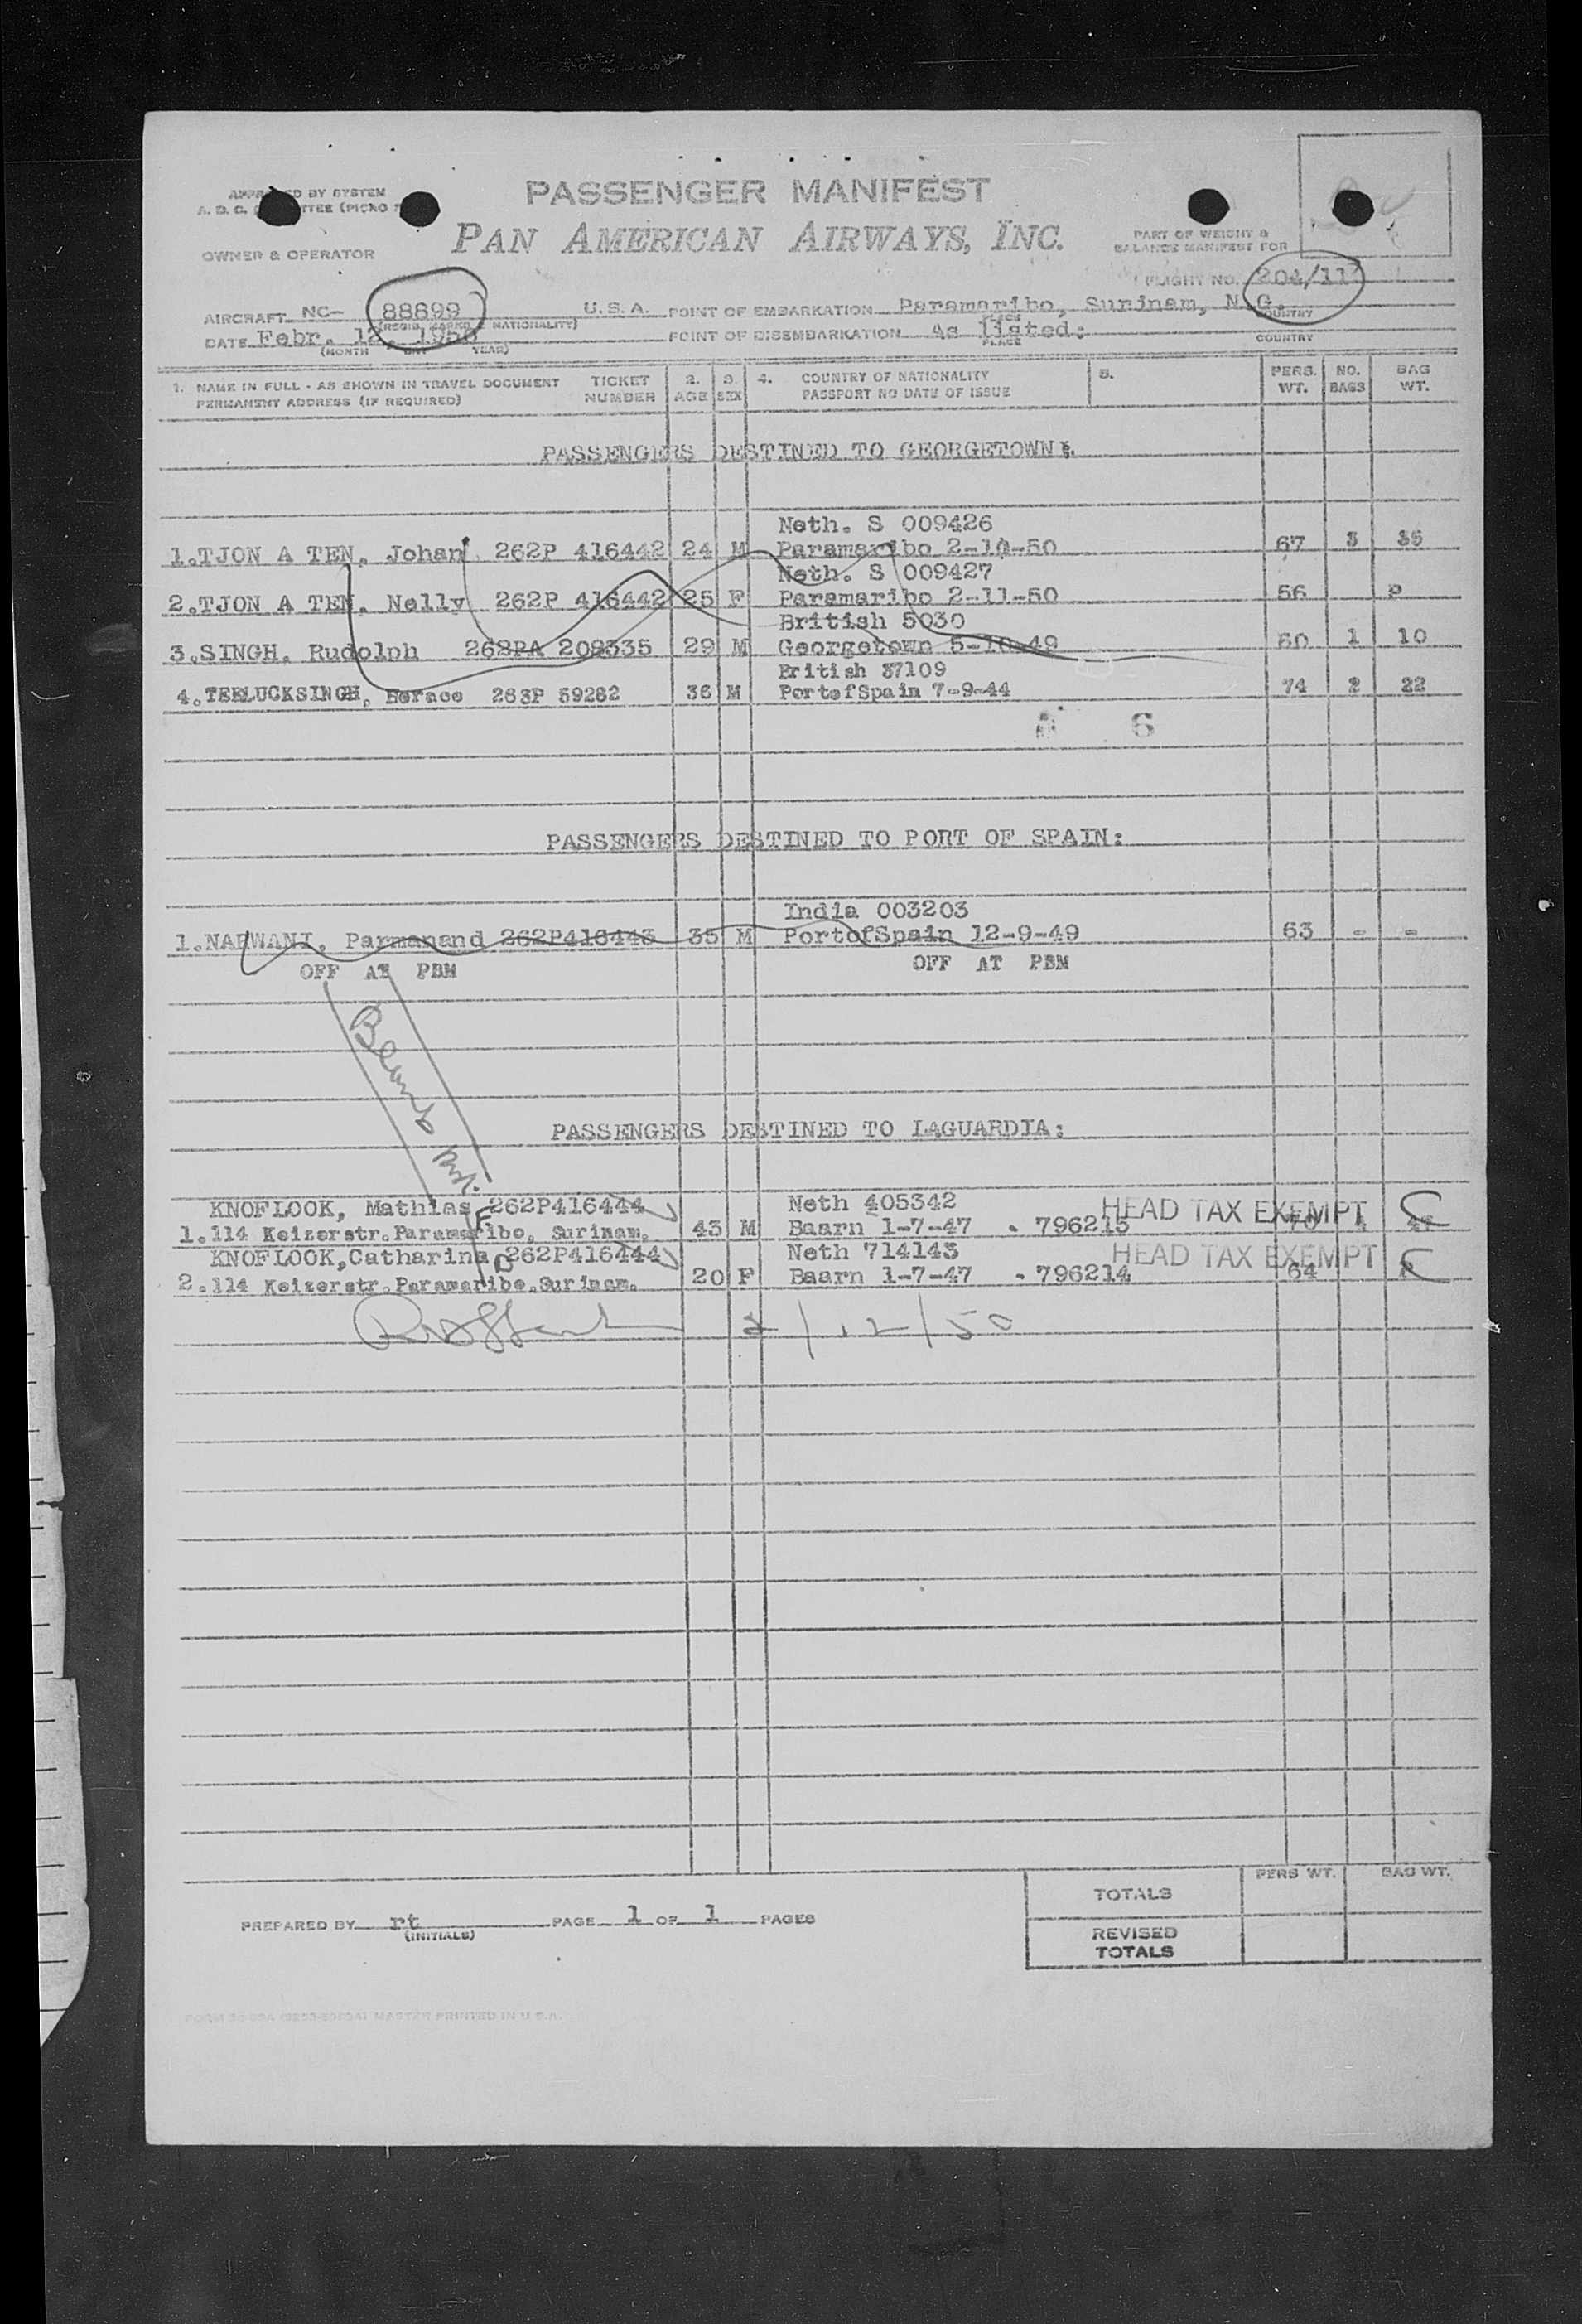 PASSENGER MANIFEST
PAN AMERICAN AIRWAYS, INC.
BY SYSTEM
A. D. C.
OWNER & OPERATOR
PART OF WEIGHT &
BALANCE MANIFEST FOR
FLIGHT NO. 204/11
AIRCRAFT NC- 88899 U.S.A. POINT OF EMBARKATION Paramaribo, Surinam, N.G.
(REGIS. MARKS & NATIONALITY) PLACE COUNTRY
DATE Febr. 12, 1950 POINT OF DISEMBARKATION As listed:
(MONTH DAY YEAR) PLACE COUNTRY
1. NAME IN FULL - AS SHOWN IN TRAVEL DOCUMENT TICKET 2. 3. 4. COUNTRY OF NATIONALITY 5. PERS. NO. BAG
PERMANENT ADDRESS (IF REQUIRED) NUMBER AGE SEX PASSPORT NO DATE OF ISSUE WT. BAGS WT.
PASSENGERS DESTINED TO GEORGETOWN:
Neth. S 009426
1.TJON A TEN, Johan 262P 416442 24 M Paramaribo 2-10-50 67 3 35
Neth. S 009427
2.TJON A TEN, Nelly 262P 416442 25 F Paramaribo 2-11-50 56 P
British 5030
3.SINGH, Rudolph 262PA 209335 29 M Georgetown 5-10-49 60 1 10
British 37109
4.TEELUCKSINGH, Horace 263P 59282 36 M PortofSpain 7-9-44 74 2 22
6
PASSENGERS DESTINED TO PORT OF SPAIN:
India 003203
1.NARWANI, Parmanand 262P416443 35 M PortofSpain 12-9-49 63 - -
OFF AT PBM OFF AT PBM
PASSENGERS DESTINED TO LAGUARDIA:
KNOFLOOK, Mathias 262P416444 Neth 405342 HEAD TAX EXEMPT
1.114 Keizerstr.Paramaribo, Surinam. 43 M Baarn 1-7-47 . 796215 70
KNOFLOOK,Catharina 262P416444 Neth 714143 HEAD TAX EXEMPT
2.114 Keizerstr.Paramaribo,Surinam. 20 F Baarn 1-7-47 . 796214 64
2/12/50
PERS WT. BAG WT.
TOTALS
REVISED
TOTALS
PREPARED BY rt PAGE 1 OF 1 PAGES
(INITIALS)
MASTER PRINTED IN U.S.A.